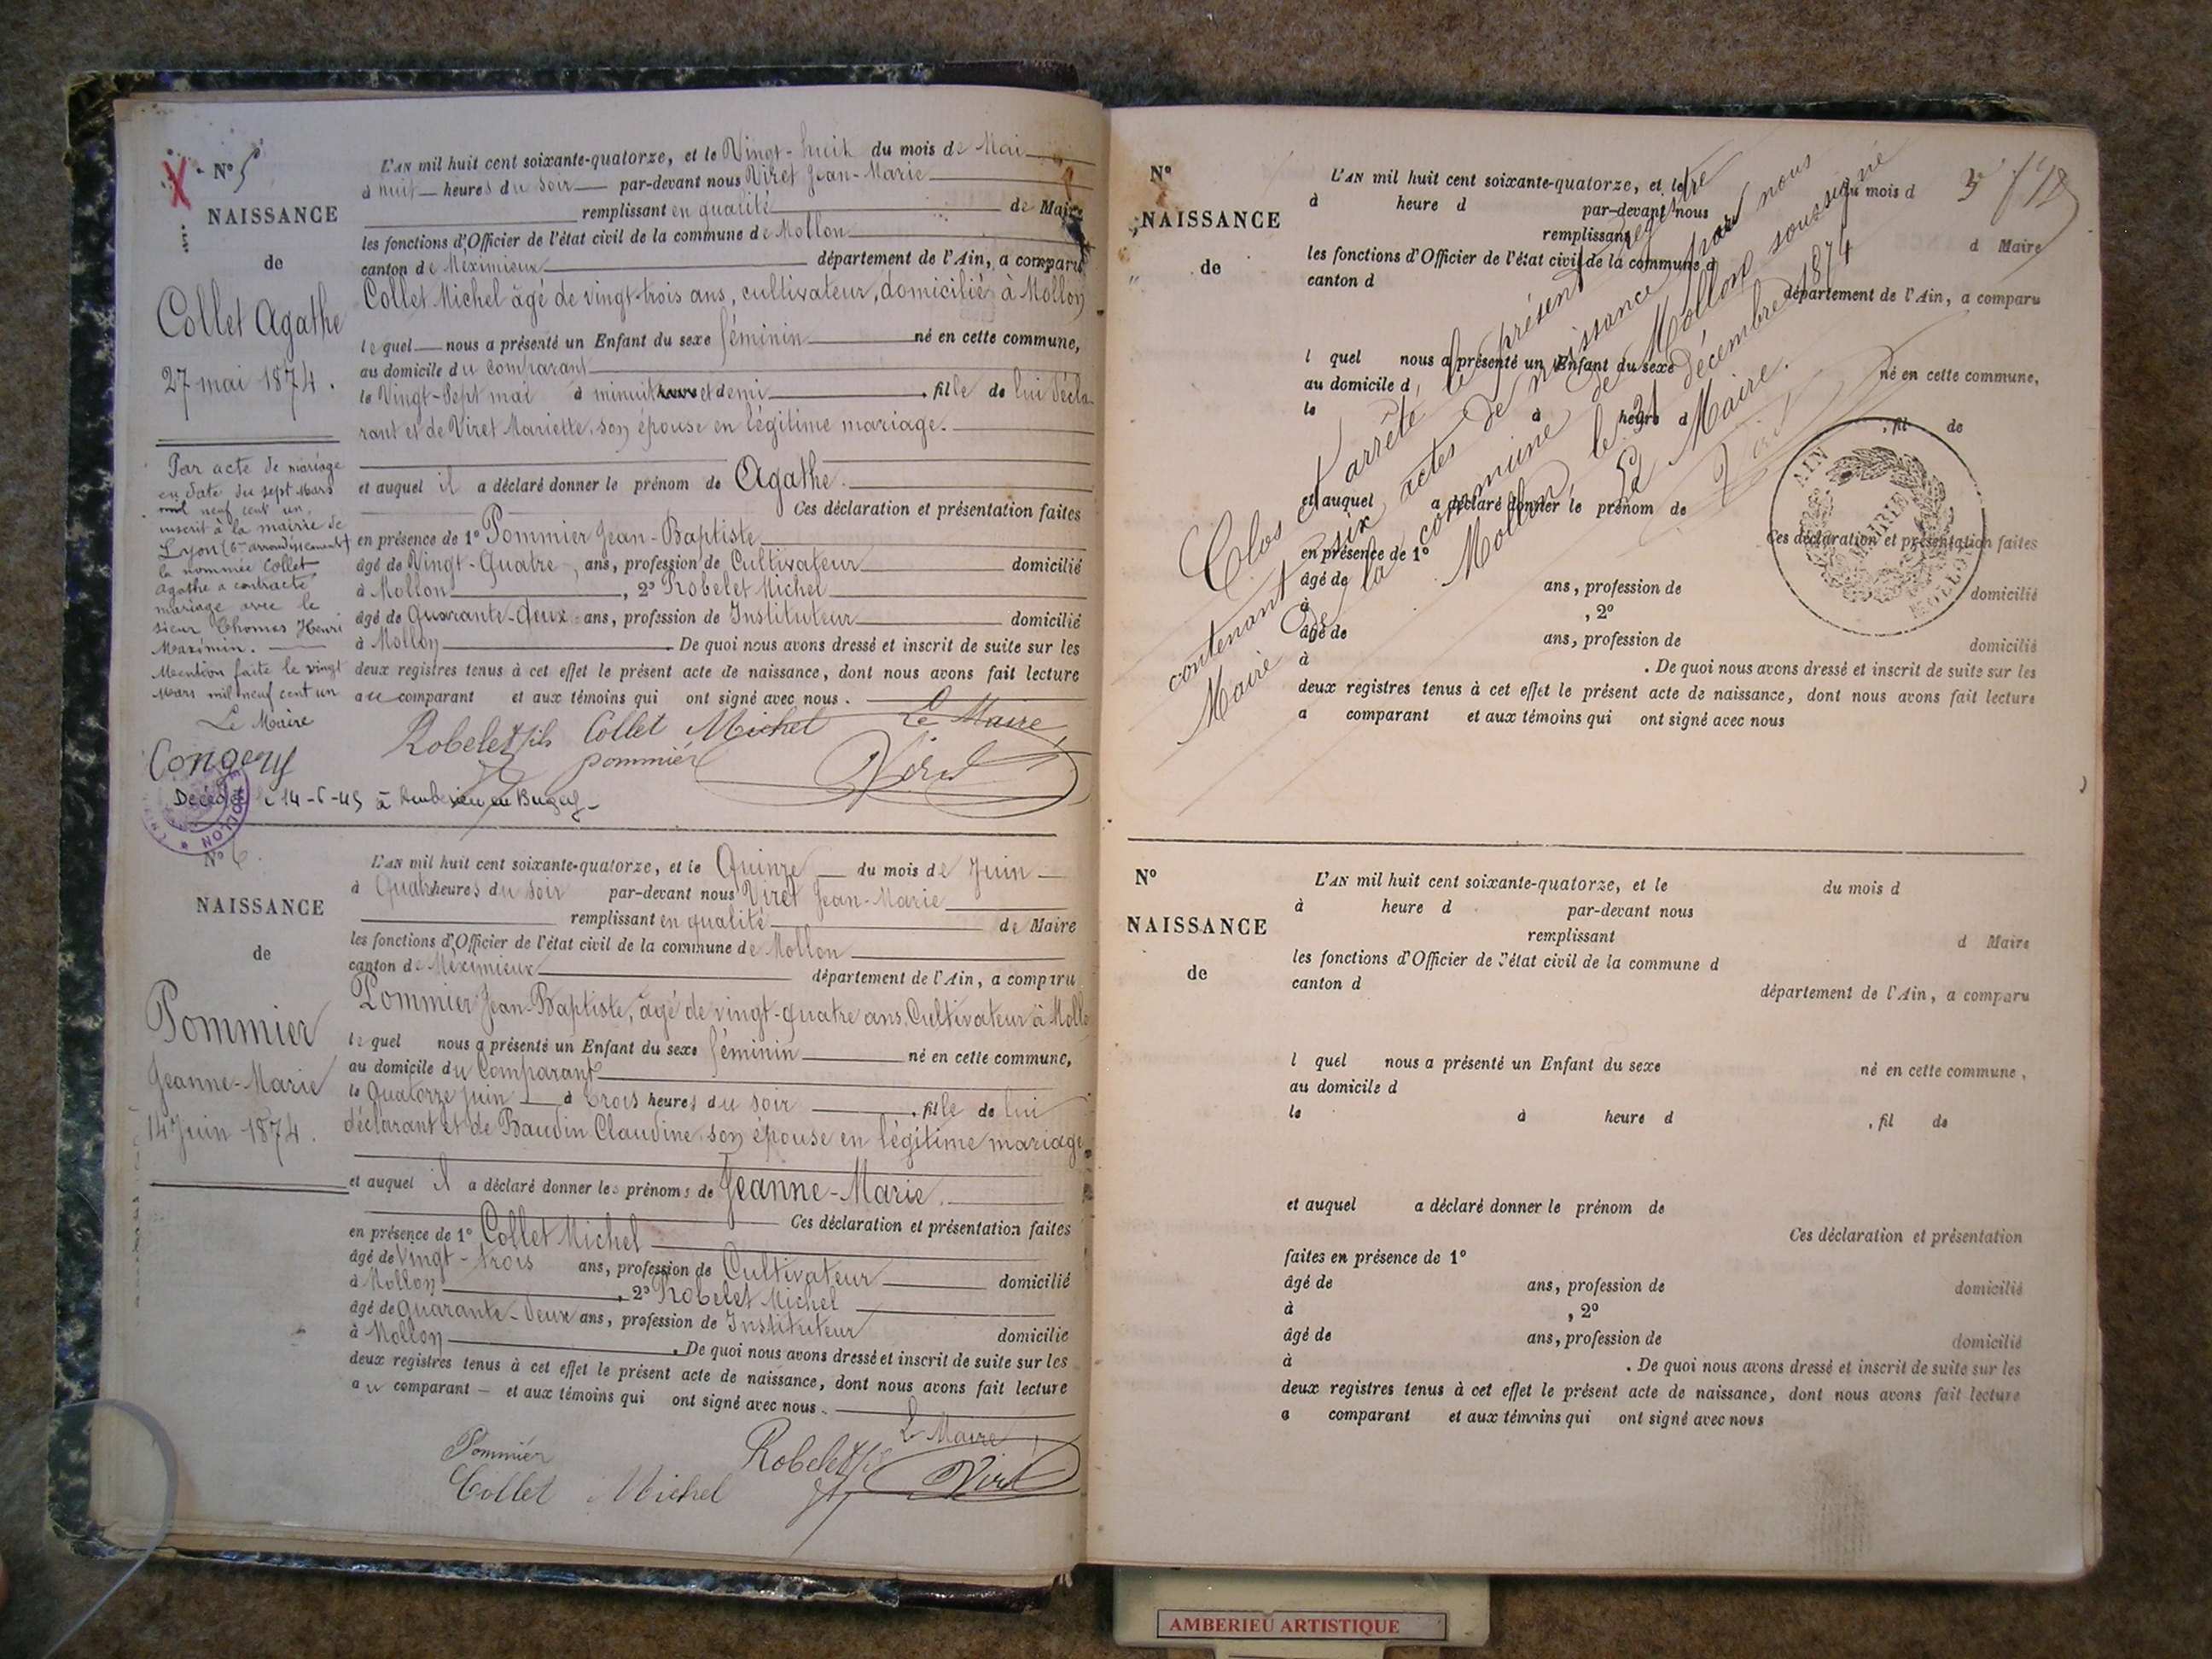 N° 5
NAISSANCE
de
Collet Agathe
27 mai 1874.
Par acte de mariage
en date du sept Mars
mil neuf cent un,
inscrit à la mairie de
Lyon (6e arrondissement)
la nommée Collet
Agathe a contracté
mariage avec le
sieur Thomas Henri
Maximin.
Mention faite le vingt
Mars mil neuf cent un
Le Maire
L'AN mil huit cent soixante-quatorze, et le Vingt-huit du mois de Mai
à huit heures du soir par-devant nous Viret Jean-Marie
remplissant en qualité de Maire
les fonctions d'Officier de l'état civil de la commune de Mollon
canton de Méximieux département de l'Ain, a comparu
Collet Michel âgé de vingt-trois ans, cultivateur, domicilié à Mollon
lequel nous a présenté un Enfant du sexe féminin né en cette commune,
au domicile du Comparant
le Vingt-Sept mai à minuit heure et demi , fille de lui décla-
rant et de Viret Mariette, son épouse en légitime mariage.
et auquel il a déclaré donner le prénom de Agathe.
Ces déclaration et présentation faites
en présence de 1° Pommier Jean-Baptiste
âgé de Vingt-Quatre ans, profession de Cultivateur domicilié
à Mollon , 2° Robelet Michel
âgé de Quarante-deux ans, profession de Instituteur domicilié
à Mollon . De quoi nous avons dressé et inscrit de suite sur les
deux registres tenus à cet effet le présent acte de naissance, dont nous avons fait lecture
au comparant et aux témoins qui ont signé avec nous.
Robelet fils Collet Michel Le Maire,
pommier Viret
Décédée le 14-6-45 à Ambérieu en Bugey
N° 6.
NAISSANCE
de
Pommier
Jeanne-Marie
14 Juin 1874.
L'AN mil huit cent soixante-quatorze, et le Quinze du mois de Juin
à Quatre heures du soir par-devant nous Viret Jean-Marie
remplissant en qualité de Maire
les fonctions d'Officier de l'état civil de la commune de Mollon
canton de Méximieux département de l'Ain, a comparu
Pommier Jean-Baptiste, âgé de vingt-quatre ans, Cultivateur à Mollon
lequel nous a présenté un Enfant du sexe féminin né en cette commune,
au domicile du Comparant
le Quatorze juin à trois heures du soir , fille de lui
déclarant et de Baudin Claudine, son épouse en légitime mariage,
et auquel il a déclaré donner les prénoms de Jeanne-Marie.
Ces déclaration et présentation faites
en présence de 1° Collet Michel
âgé de Vingt-trois ans, profession de Cultivateur domicilié
à Mollon , 2° Robelet Michel
âgé de Quarante-deux ans, profession de Instituteur
à Mollon domicilié
. De quoi nous avons dressé et inscrit de suite sur les
deux registres tenus à cet effet le présent acte de naissance, dont nous avons fait lecture
au comparant et aux témoins qui ont signé avec nous.
Le Maire,
Pommier Robelet fils Viret
Collet Michel
N°
NAISSANCE
de
L'AN mil huit cent soixante-quatorze, et le du mois d
à heure d par-devant nous
remplissant d Maire
les fonctions d'Officier de l'état civil de la commune d
canton d département de l'Ain, a comparu
l quel nous a présenté un Enfant du sexe né en cette commune,
au domicile d
le à heure d , fil de
et auquel a déclaré donner le prénom de
Ces déclaration et présentation faites
en présence de 1°
âgé de ans, profession de domicilié
à , 2°
âgé de ans, profession de domicilié
à . De quoi nous avons dressé et inscrit de suite sur les
deux registres tenus à cet effet le présent acte de naissance, dont nous avons fait lecture
a comparant et aux témoins qui ont signé avec nous
Clos et arrêté le présent registre
contenant six actes de naissance par nous
Maire de la commune de Mollon soussigné
Mollon le 31 décembre 1874
Le Maire.
Viret
AIN
MAIRIE
MOLLON
N°
NAISSANCE
de
L'AN mil huit cent soixante-quatorze, et le du mois d
à heure d par-devant nous
remplissant d Maire
les fonctions d'Officier de l'état civil de la commune d
canton d département de l'Ain, a comparu
l quel nous a présenté un Enfant du sexe né en cette commune,
au domicile d
le à heure d , fil de
et auquel a déclaré donner le prénom de
Ces déclaration et présentation
faites en présence de 1°
âgé de ans, profession de domicilié
à , 2°
âgé de ans, profession de domicilié
à . De quoi nous avons dressé et inscrit de suite sur les
deux registres tenus à cet effet le présent acte de naissance, dont nous avons fait lecture
a comparant et aux témoins qui ont signé avec nous
AMBERIEU ARTISTIQUE